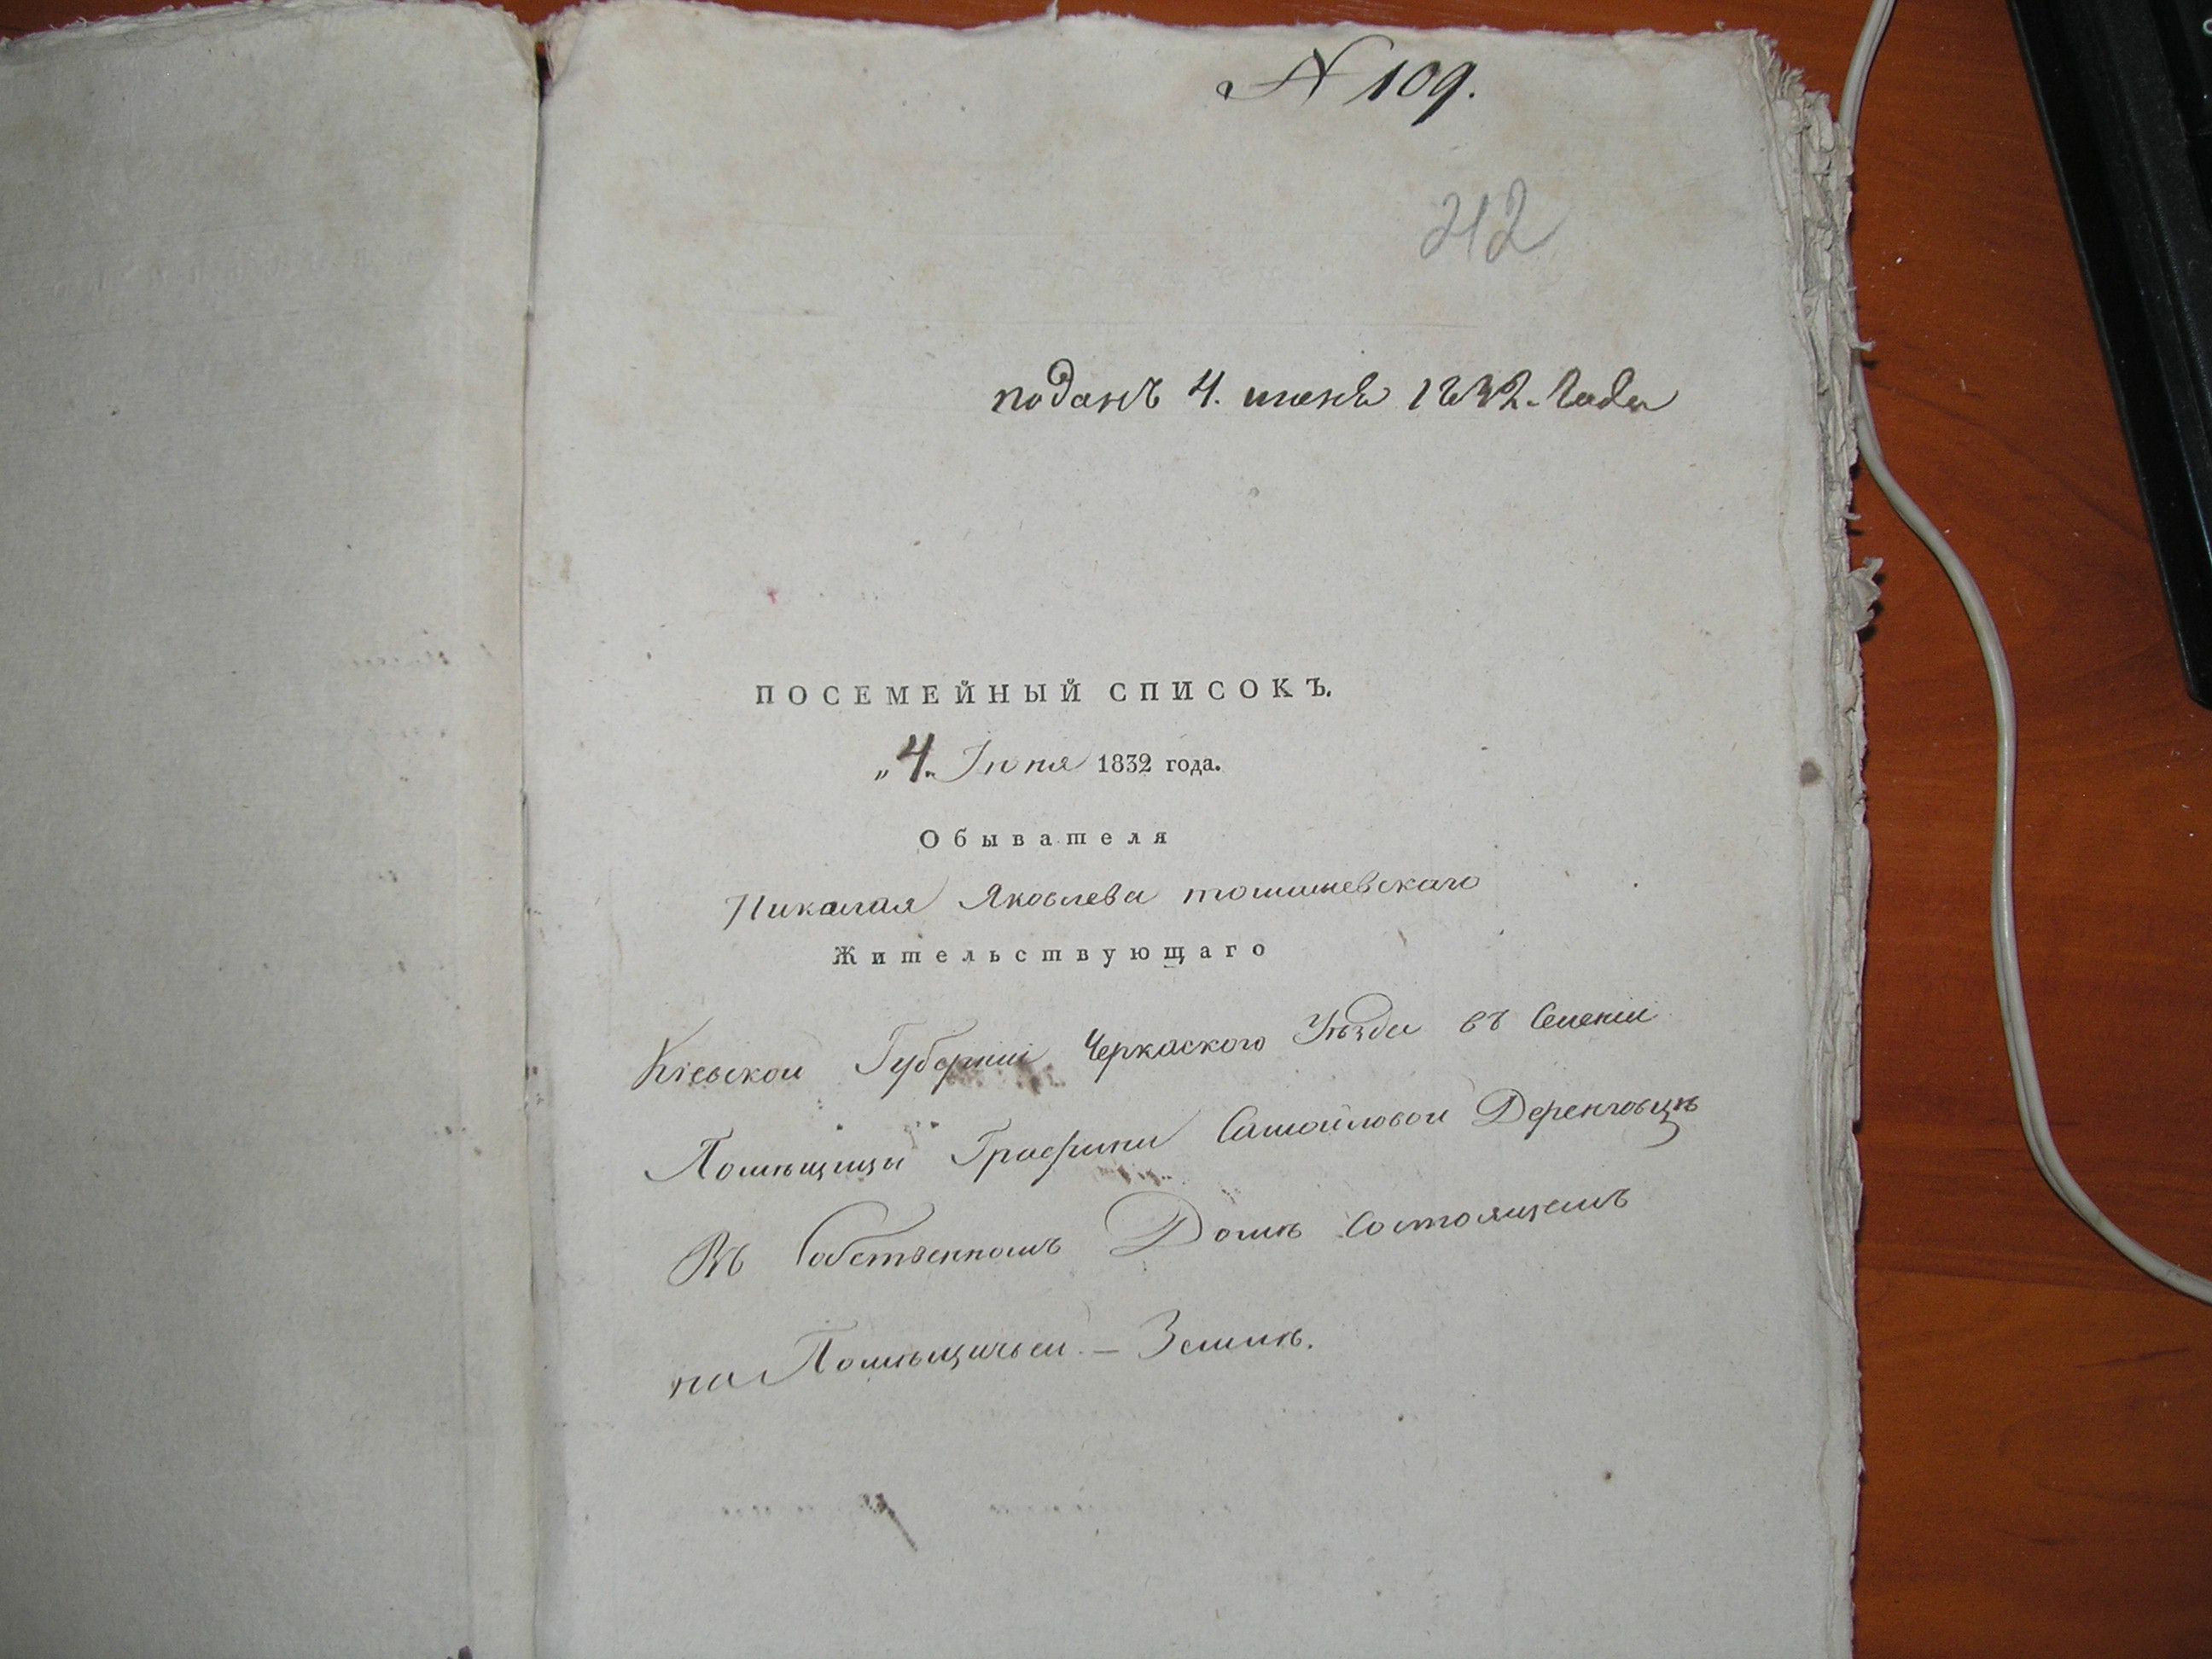 N 109.
212
поданъ 4. июня 1832. года
ПОСЕМЕЙНЫЙ СПИСОКЪ.
„4„ Іюня 1832 года.
Обывателя
Николая Яковлева томашевскаго
Жительствующаго
Кіевской Губерніи Черкаского Уѣзда въ Селеніи
Помѣщицы Графини Самойловой Деренковцѣ
Въ Собственномъ Домѣ Состоящемъ
на Помѣщичьей. – Землѣ.